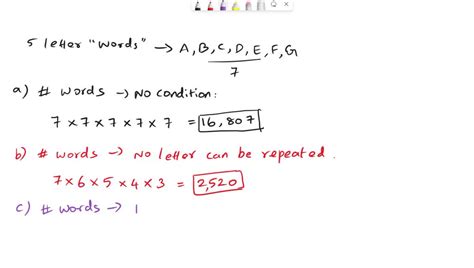 5 letter "words" → A, B, C, D, E, F, G
7
a) # words → No condition:
7 × 7 × 7 × 7 × 7 = 16,807
b) # words → No letter can be repeated.
7 × 6 × 5 × 4 × 3 = 2,520
c) # words →